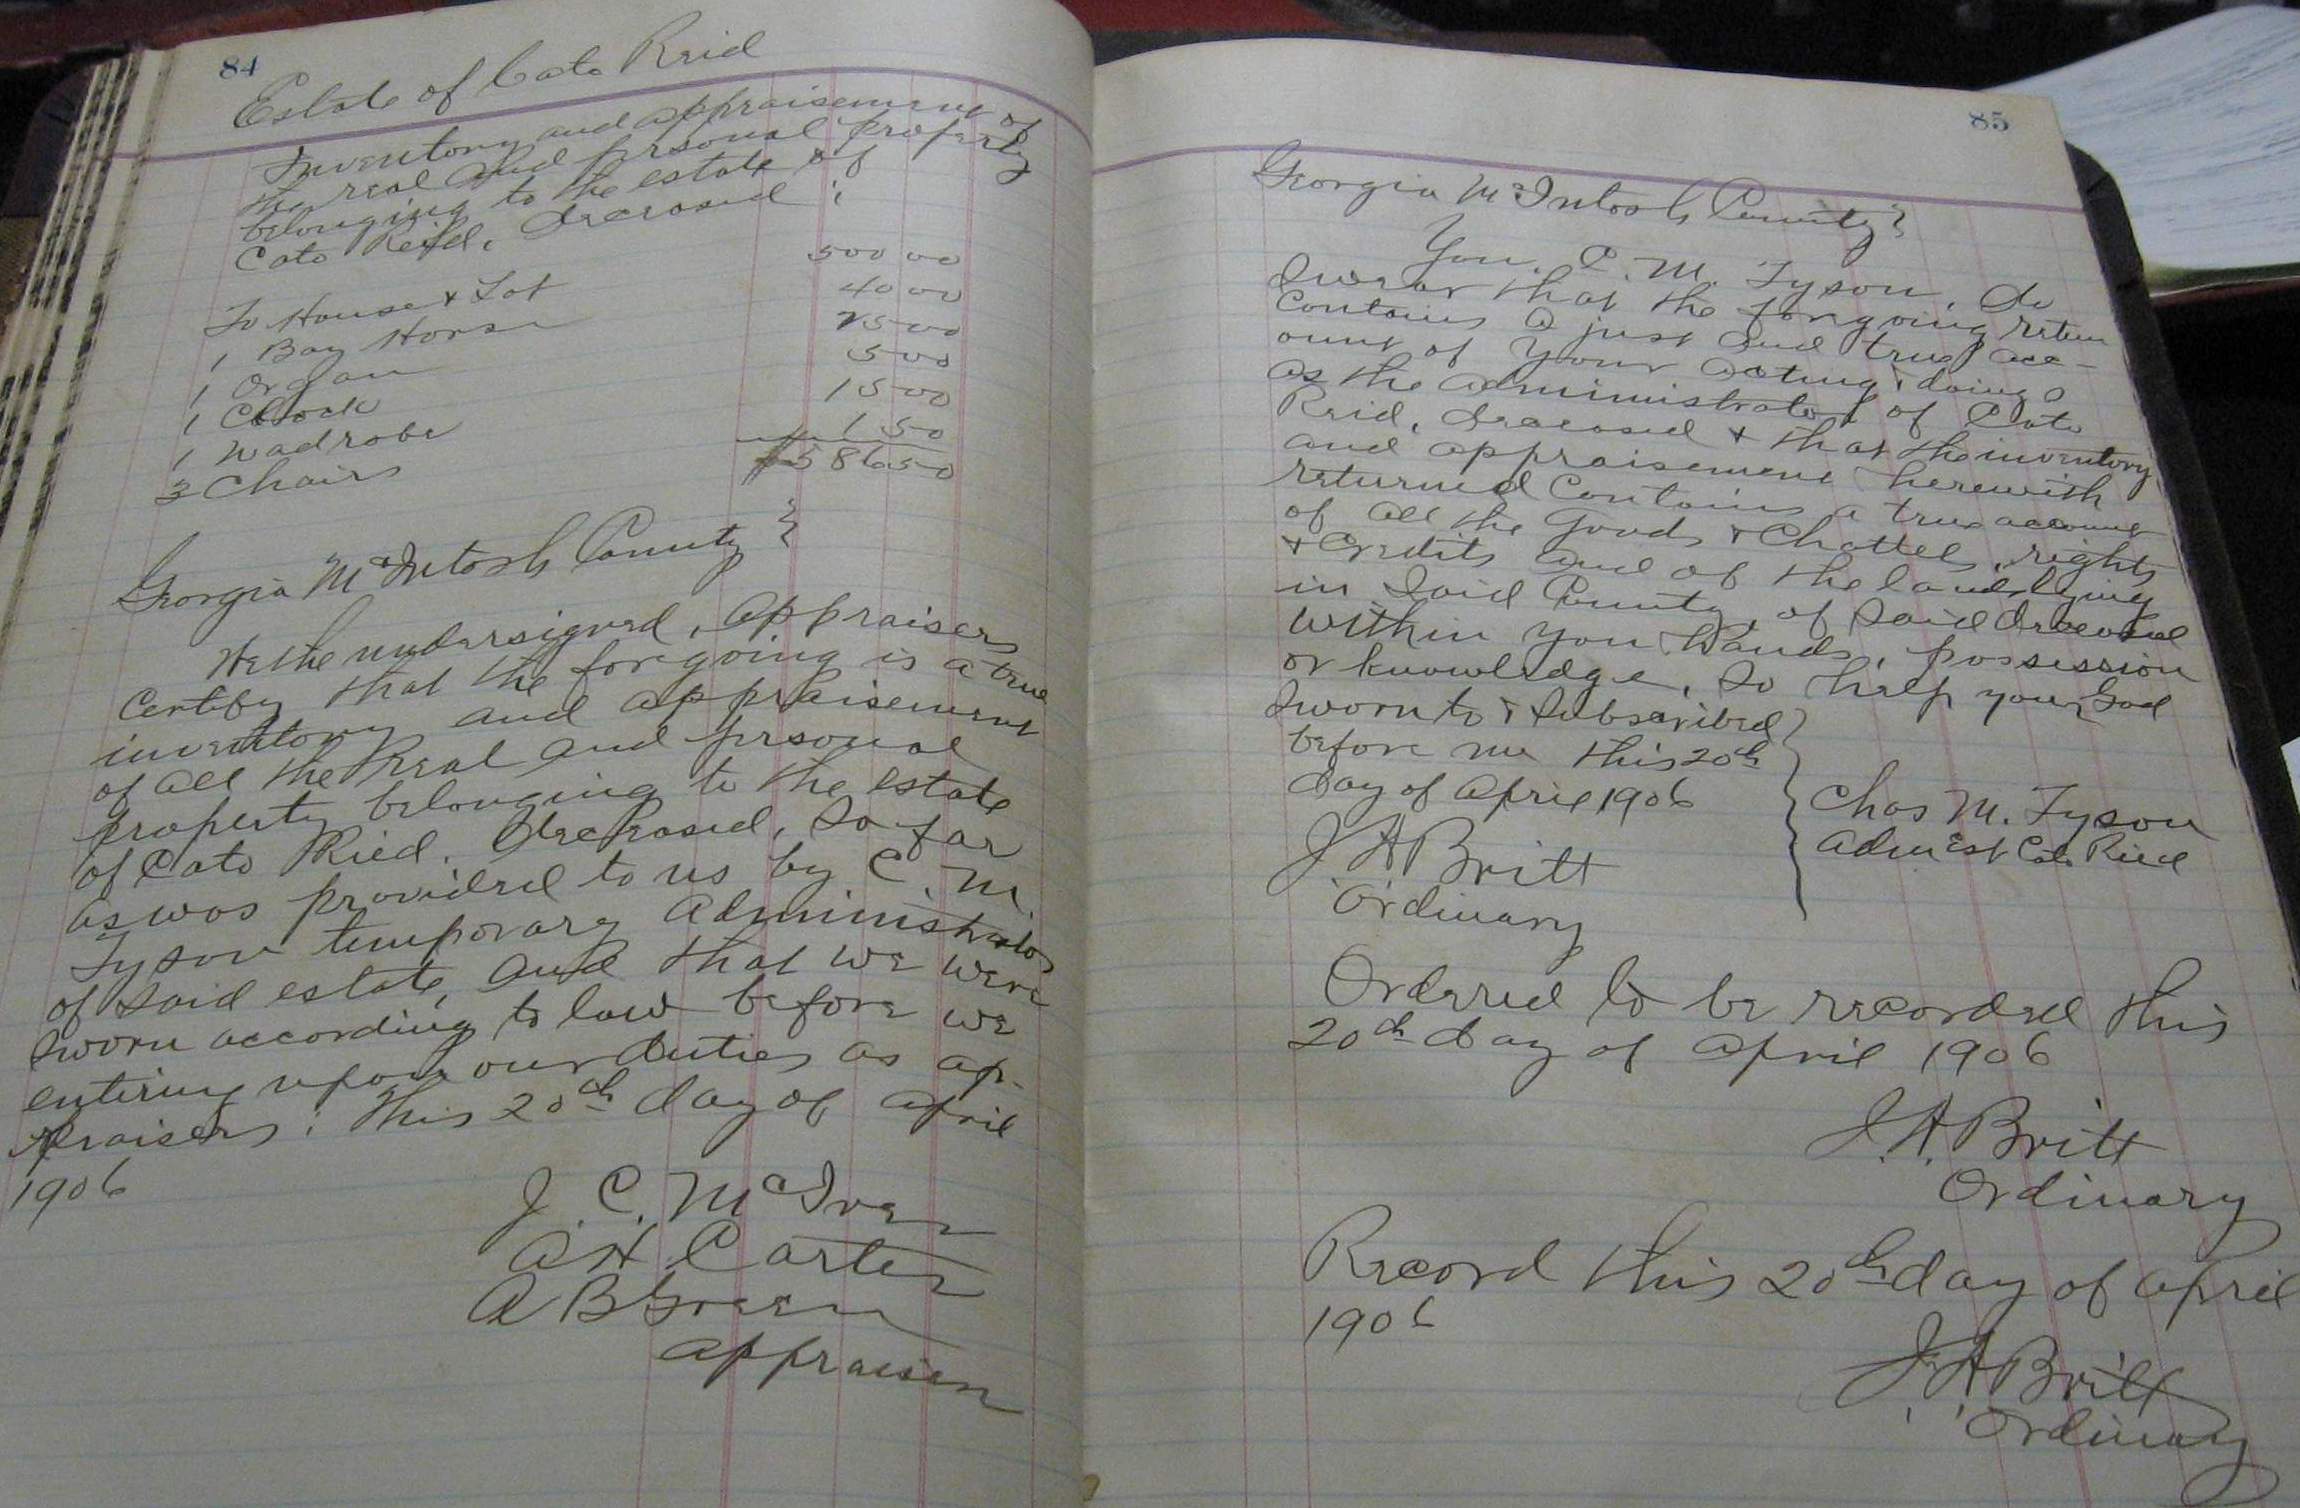 84
Estate of Cato Reid
Inventory and appraisement of
the real and personal property
belonging to the estate of
Cato Reid, deceased :
To House & Lot 500 00
1 Bay Horse 40 00
1 Organ 25 00
1 Clock 5 00
1 Wadrobe 15 00
3 Chairs 1 50
$586 50
Georgia McIntosh County }
We the undersigned, appraisers
certify that the foregoing is a true
inventory and appraisement
of all the Real and personal
property belonging to the estate
of Cato Ried. Deceased, so far
as was provided to us by C. M.
Tyson temporary Administrator
of said estate, and that we were
sworn according to law before we
entering upon our duties as ap-
praisers : this 20th day of April
1906
J. C. McIver
A H Carter
A B Green
appraisers
85
Georgia McIntosh County }
You, C. M. Tyson, do
swear that the forgoing return
contains a just and true acc-
ount of your acting & doing
as the administrator of Cato
Reid, deceased & that the inventory
and appraisement herewith
returned contains a true account
of all the goods & Chattels, rights
& credits and of the lands lying
in said County, of said deceased
within you hands, possession
or knowledge, so help you God
Sworn to & subscribed }
before me this 20th
day of April 1906
Chas M. Tyson
Adm Est Cato Ried
J A Britt
Ordinary
Ordered to be recorded this
20th day of April 1906
J. A. Britt
Ordinary
Record this 20th day of April
1906
J A Britt
Ordinary